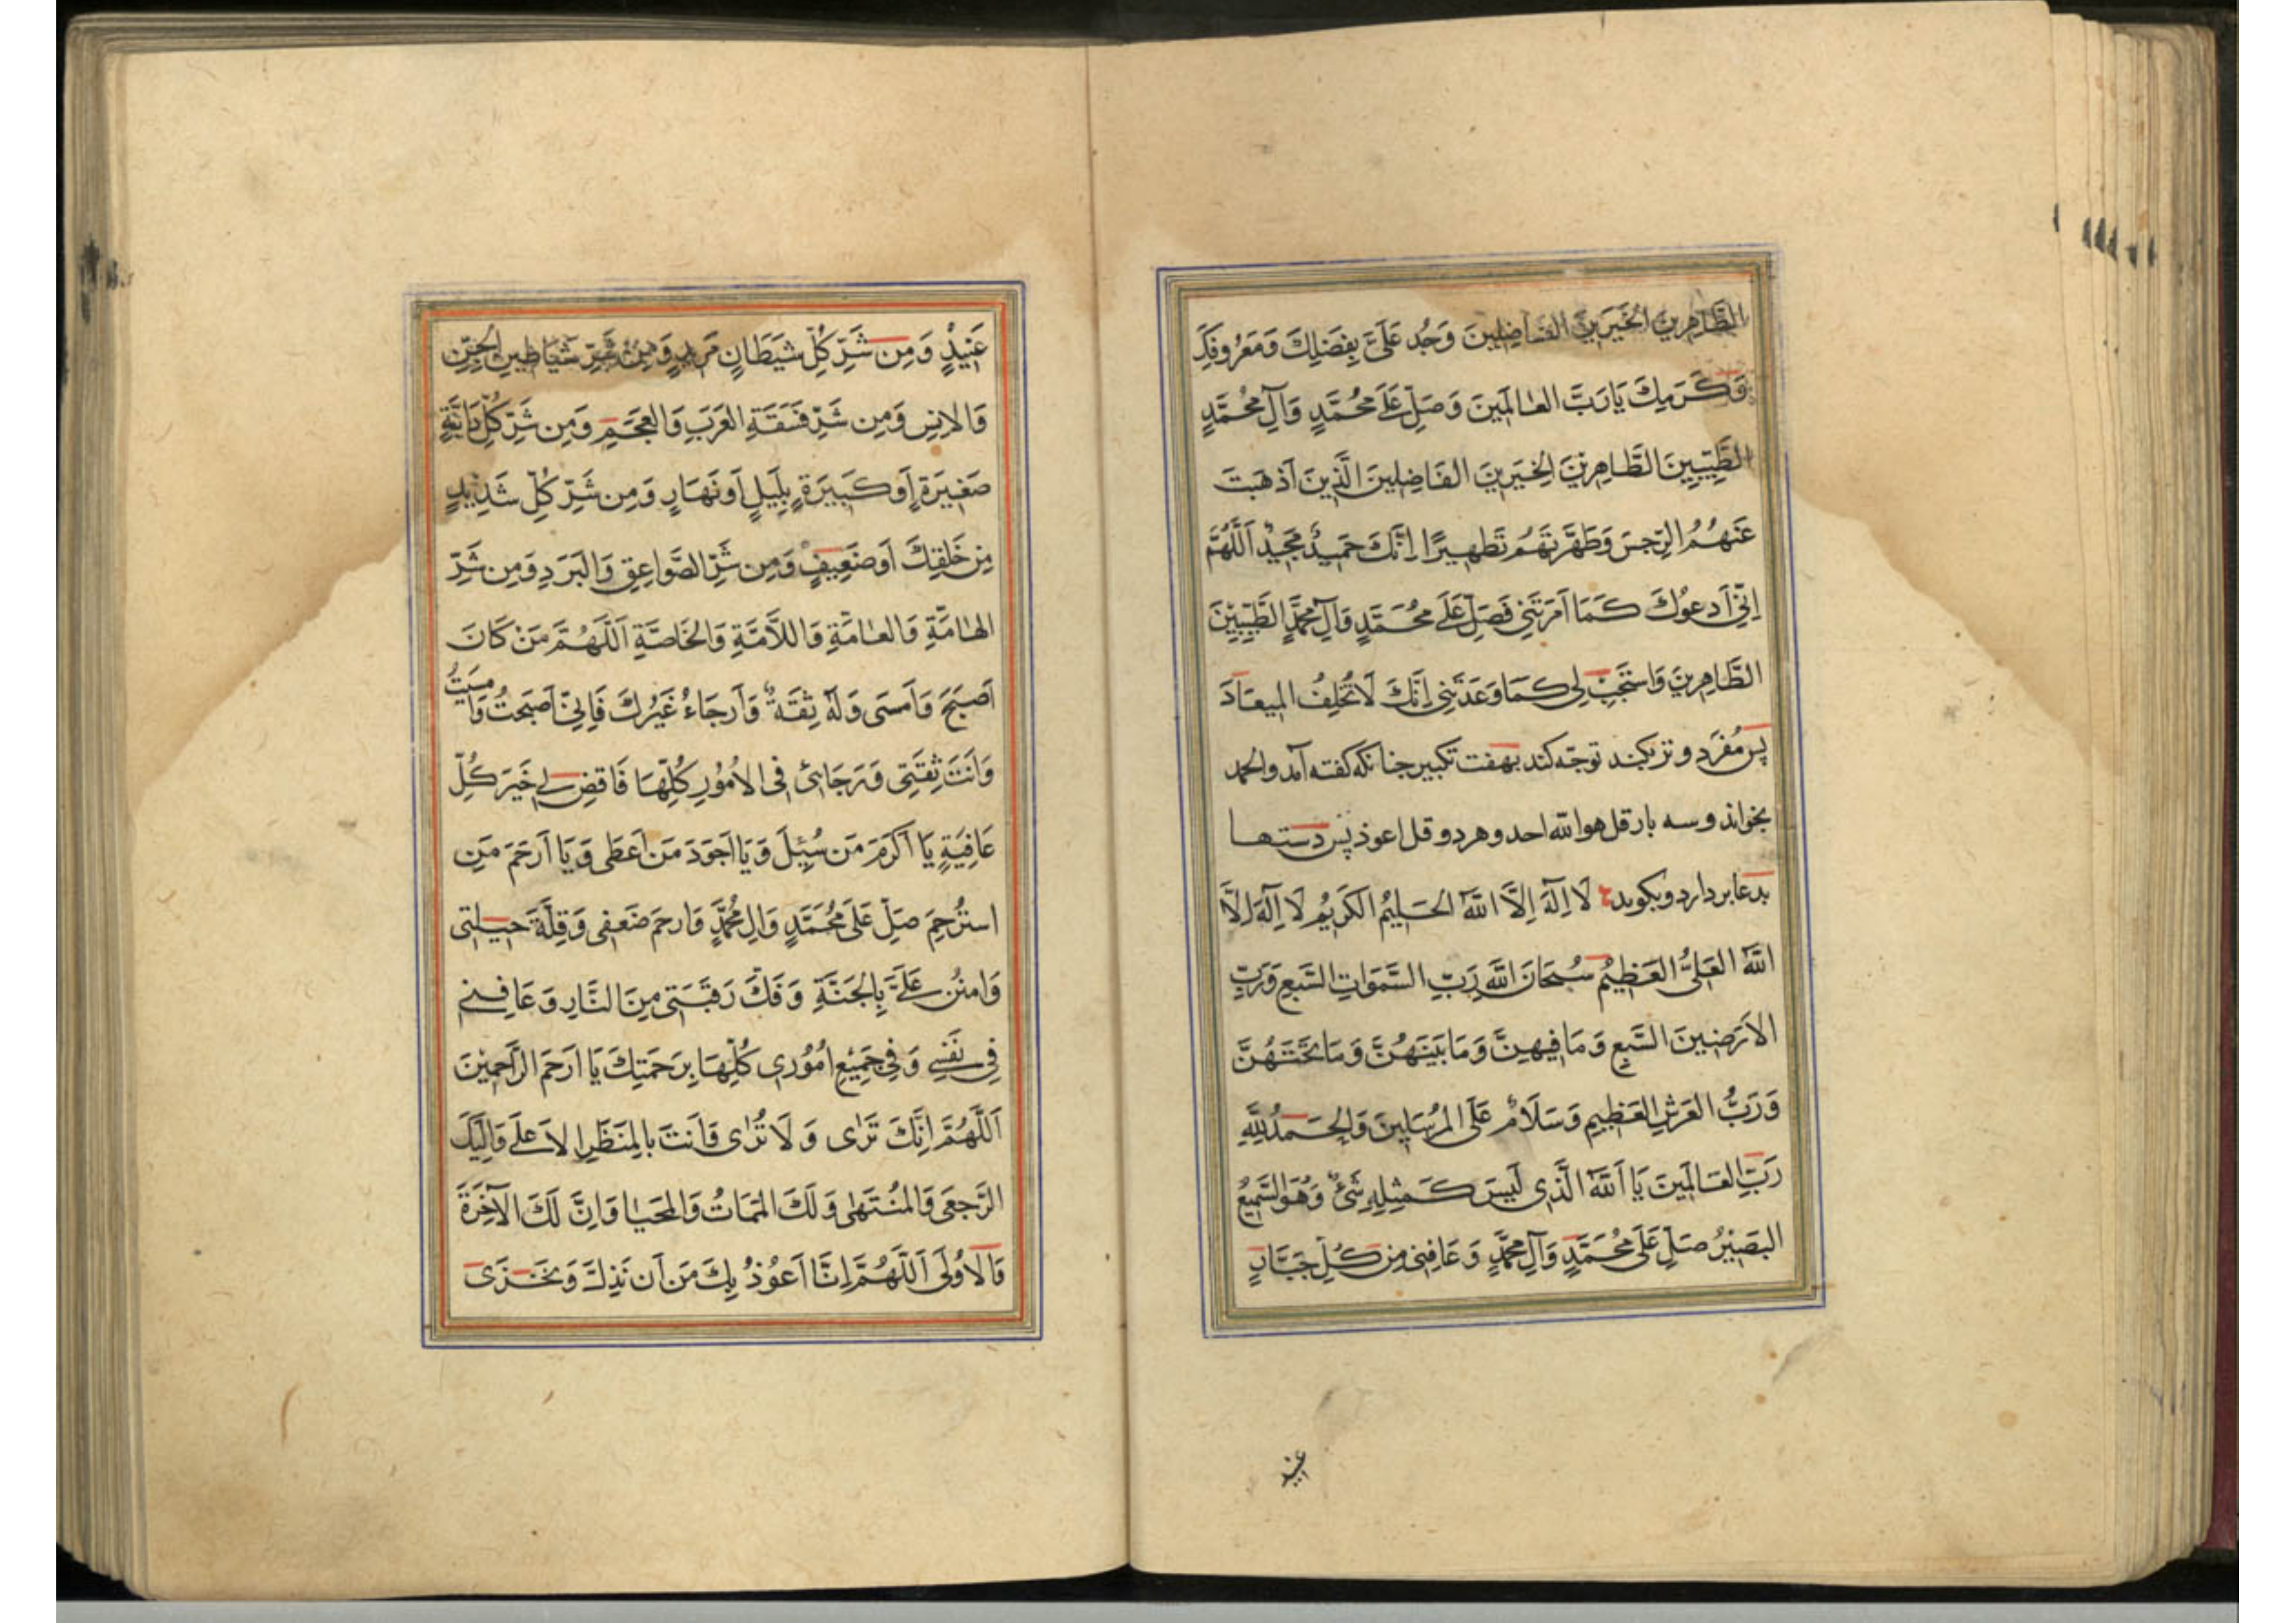 الطَّاهِرِينَ الخَيِّرِينَ الفَاضِلِينَ وَجُد عَلَيَّ بِفَضلِكَ وَمَعرُوفِكَ
وَكَرَمِكَ يَا رَبَّ العَالَمِينَ وَصَلِّ عَلَى مُحَمَّدٍ وَآلِ مُحَمَّدٍ
الطَّيِّبِينَ الطَّاهِرِينَ الخَيِّرِينَ الفَاضِلِينَ الَّذِينَ اَذهَبتَ
عَنهُمُ الرِّجسَ وَطَهَّرتَهُم تَطهِيرًا اِنَّكَ حَمِيدٌ مَجِيدٌ اَللَّهُمَّ
اِنِّي اَدعُوكَ كَمَا اَمَرتَنِي فَصَلِّ عَلَى مُحَمَّدٍ وَآلِ مُحَمَّدٍ الطَّيِّبِينَ
الطَّاهِرِينَ وَاستَجِب لِي كَمَا وَعَدتَنِي اِنَّكَ لَا تُخلِفُ المِيعَادَ
پس مُفرَد وتر بکند توجّه کند بهفت تکبیر چنانکه کفته آمد والحمد
بخواند و سه بار قل هو الله احد و هر دو قل اعوذ پس دستها
بدعا بردارد و بکوید لَا اِلٰهَ اِلَّا اللهُ الحَلِيمُ الكَرِيمُ لَا اِلٰهَ اِلَّا
اللهُ العَلِيُّ العَظِيمُ سُبحَانَ اللهِ رَبِّ السَّمَوَاتِ السَّبعِ وَرَبِّ
الاَرَضِينَ السَّبعِ وَمَا فِيهِنَّ وَمَا بَينَهُنَّ وَمَا تَحتَهُنَّ
وَرَبُّ العَرشِ العَظِيمِ وَسَلَامٌ عَلَى المُرسَلِينَ وَالحَمدُ لِلّٰهِ
رَبِّ العَالَمِينَ يَا اَللهُ الَّذِي لَيسَ كَمِثلِهِ شَئٌ وَهُوَ السَّمِيعُ
البَصِيرُ صَلِّ عَلَى مُحَمَّدٍ وَآلِ مُحَمَّدٍ وَعَافِنِي مِن كُلِّ جَبَّارٍ
عنید
عَنِيدٍ وَمِن شَرِّ كُلِّ شَيطَانٍ مَرِيدٍ وَمِن شَرِّ شَيَاطِينِ الجِنِّ
وَالاِنسِ وَمِن شَرِّ فَسَقَةِ العَرَبِ وَالعَجَمِ وَمِن شَرِّ كُلِّ دَابَّةٍ
صَغِيرَةٍ اَو كَبِيرَةٍ بِلَيلٍ اَو نَهَارٍ وَمِن شَرِّ كُلِّ شَدِيدٍ
مِن خَلقِكَ اَو ضَعِيفٍ وَمِن شَرِّ الصَّوَاعِقِ وَالبَرَدِ وَمِن شَرِّ
الهَامَّةِ وَالعَامَّةِ وَاللاَّمَّةِ وَالخَاصَّةِ اَللَّهُمَّ مَن كَانَ
اَصبَحَ وَاَمسَى وَلَهُ ثِقَةٌ وَاَرجَاءُ غَيرُكَ فَاِنِّي اَصبَحتُ وَامسَيتُ
وَاَنتَ ثِقَتِي وَرَجَائِي فِي الاُمُورِ كُلِّهَا فَاقضِ لِي خَيرَ كُلِّ
عَافِيَةٍ يَا اَكرَمَ مَن سُئِلَ وَيَا اَجوَدَ مَن اَعطَى وَيَا اَرحَمَ مَنِ
استُرحِمَ صَلِّ عَلَى مُحَمَّدٍ وَالِ مُحَمَّدٍ وَارحَم ضَعفِي وَقِلَّةَ حِيلَتِي
وَامنُن عَلَيَّ بِالجَنَّةِ وَفَكَّ رَقَبَتِي مِنَ النَّارِ وَعَافِنِي
فِي نَفسِي وَفِي جَمِيعِ اُمُورِي كُلِّهَا بِرَحمَتِكَ يَا اَرحَمَ الرَّاحِمِينَ
اَللَّهُمَّ اِنَّكَ تَرٰى وَلَا تُرٰى وَاَنتَ بِالمَنظَرِ الاَعلَى وَاِلَيكَ
الرَّجعَى وَالمُنتَهٰى وَلَكَ المَمَاتُ وَالمَحيَا وَاِنَّ لَكَ الآخِرَةَ
وَالاُولَى اَللَّهُمَّ اِنَّا اَعُوذُ بِكَ مَن اَن نَذِلَّ وَنَخزَى